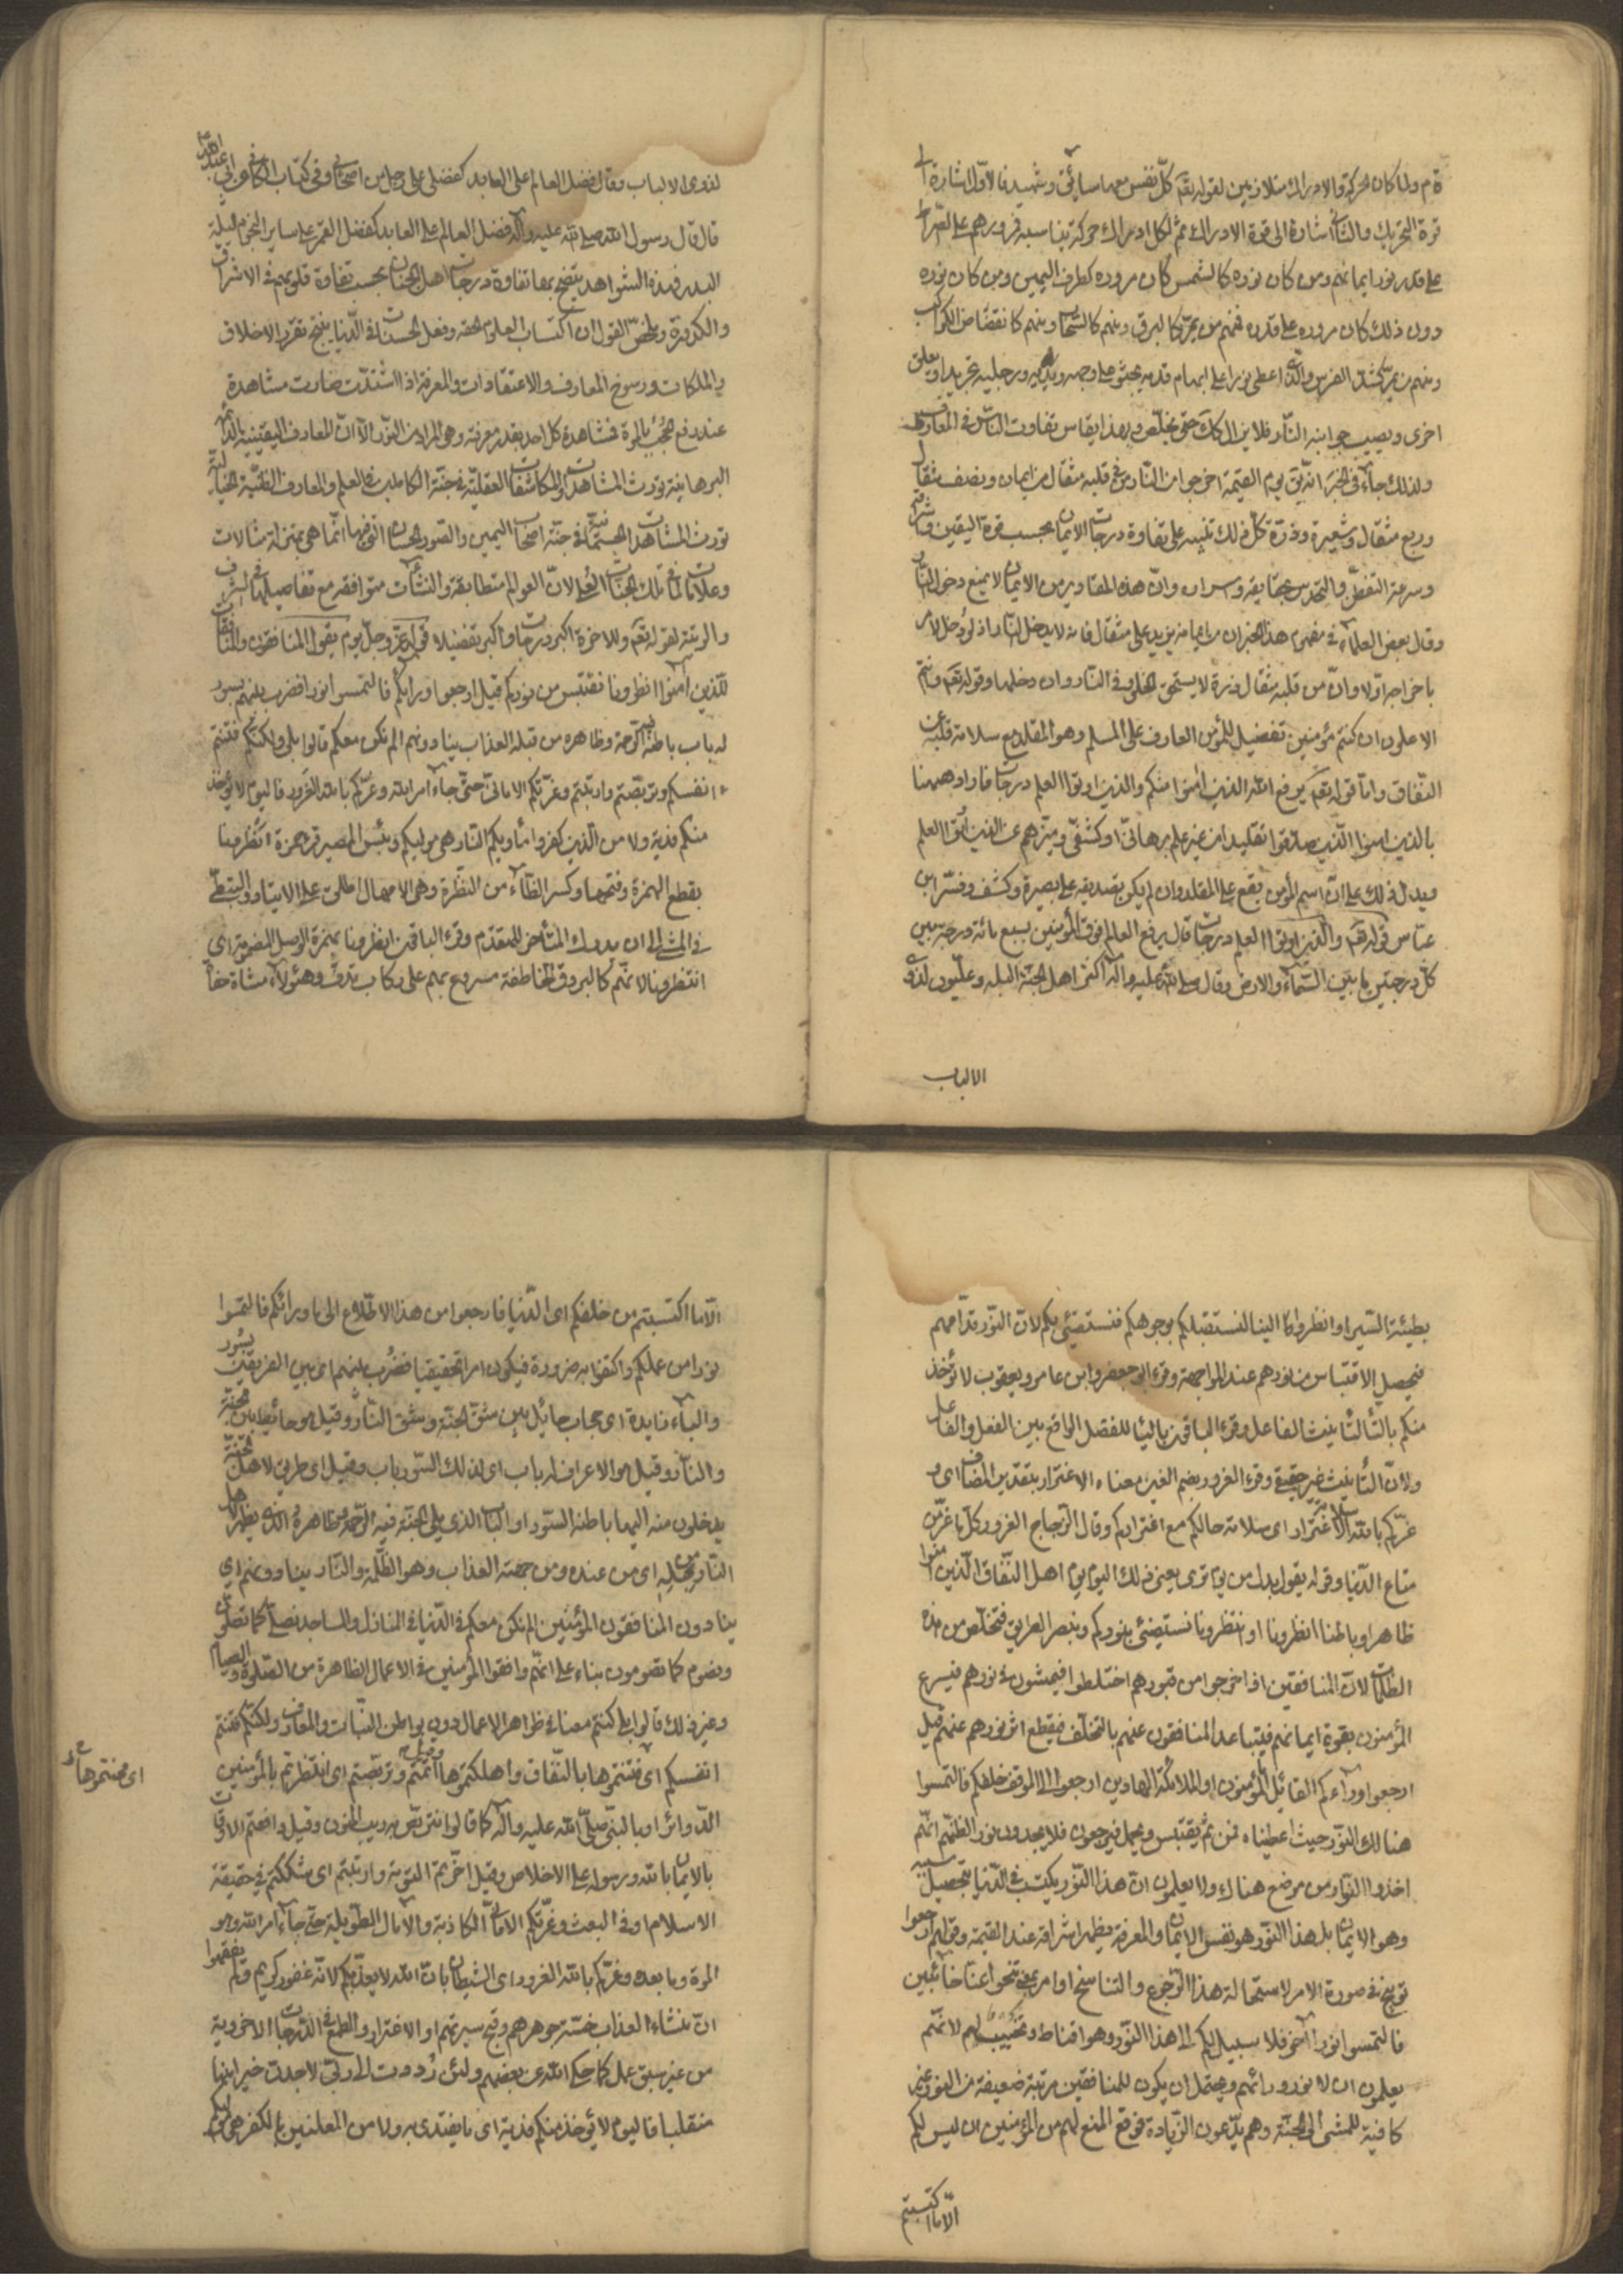 قدم ولما كان الحركة والادراك متلازمين لقوله تعم كل نفس معها سائق وشهيد فالاول اشارة الى
قوة التحريك والثاني اشارة الى قوة الادراك ثم لكل ادراك حركة يناسبه فمرورهم على الصراط
على قدر نور ايمانهم ومن كان نوره كالشمس كان مروره كطرف اليمين ومن كان نوره
دون ذلك كان مروره على قدره فمنهم من يمر كالبرق ومنهم كالسحاب ومنهم كانقضاض الكواكب
ومنهم من يمر كشد الفرس والذي اعطى نورا على ابهام قدمه يحبو على وجهه ويديه ورجليه يجر يدا ويعلق
اخرى ويصيب جوانبه النار فلا يزال كك حتى يخلص وبهذا يقاس تفاوت الناس في المعارف
ولذلك جاء في الخبر انه يق يوم القيمة اخرجوا من النار من في قلبه مثقال من ايمان ونصف مثقال
وربع مثقال وشعيرة وذرة كل ذلك تنبيه على تفاوة درجات الايمان بحسب قوة اليقين واشراقه
وسرعة التفطن والتحدس بحقايقه واسراره وان هذه المقادير من الايمان لا يمنع دخول النار
وقال بعض العلماء في مفهوم هذا الخبر ان من ايمانه يزيد على مثقال فانه لا يدخل النار اذ لو دخل لامر
باخراجه اولا وان من قلبه مثقال ذرة لا يستحق الخلود في النار وان دخلها وقوله تعم وانتم
الاعلون ان كنتم مؤمنين تفضيل للمؤمن العارف على المسلم وهو المقلد مع سلامة قلبه عن
النفاق واما قوله تعم يرفع الله الذين امنوا منكم والذين اوتوا العلم درجات فاراد ههنا
بالذين امنوا الذين صدقوا تقليدا من غير علم برهاني او كشفي وميزهم عن الذين اوتوا العلم
ويدل ذلك على ان اسم المؤمن يقع على المقلد وان لم يكن تصديقه على بصيرة وكشف وفسر ابن
عباس قوله تعم والذين اوتوا العلم درجات قال يرفع العالم فوق المؤمنين بسبع مائة درجة بين
كل درجتين ما بين السماء والارض وقال صلى الله عليه واله اكثر اهل الجنة البله وعليون لذوي
الالباب
لذوي الالباب وقال فضل العالم على العابد كفضلي على رجل من اصحابي وفي كتاب الكافي عن ابي عبد الله
قال قال رسول الله صلى الله عليه واله فضل العالم على العابد كفضل القمر على ساير النجوم ليلة
البدر فبهذه الشواهد يتضح بها تفاوة درجات اهل الجنان بحسب تفاوة قلوبهم في الاشراق
والكدورة وملخص القول ان اكتساب العلوم الحقه وفعل الحسنات في الدنيا ينتج تقرر الاخلاق
والملكات ورسوخ المعارف والاعتقادات والمعرفة اذا اشتدت صارت مشاهدة
عند رفع الحجب بالموة فمشاهدة كل احد بقدر معرفته وهي المراد من النور الا ان المعارف اليقينية بالدائمه
البرهانية يورث المشاهدات والمكاشفات العقلية في جنة الكاملين في العلم والمعارف الظنية الخيالية
تورث المشاهدات الجسمانية في جنة اصحاب اليمين والصور الحسان التي فيها انما هي بمنزلة مثالات
وعلامات لما في تلك الجنات العلى لان العوالم متطابقة والنشئات متوافقة مع تفاصيلها في الشرف
والرتبة لقوله تعم وللاخرة اكبر درجات واكبر تفضيلا قوله عز وجل يوم يقول المنافقون والمنافقات
للذين آمنوا انظرونا نقتبس من نوركم قيل ارجعوا وراءكم فالتمسوا نورا فضرب بينهم بسور
له باب باطنه فيه الرحمة وظاهره من قبله العذاب ينادونهم الم نكن معكم قالوا بلى ولكنكم فتنتم
انفسكم وتربصتم وارتبتم وغرتكم الاماني حتى جاء امر الله وغركم بالله الغرور فاليوم لا يؤخذ
منكم فدية ولا من الذين كفروا مأويكم النار هي موليكم وبئس المصير قرء حمزة انظرونا
بقطع الهمزة وفتحها وكسر الظاء من النظرة وهي الامهال اطلق على الايتاد والتبطئ
في المشي الى ان يدرك المتأخر المتقدم وقرء الباقون انظرونا بهمزة الوصل المضمومة اي
انتظرونا لانهم كالبروق الخاطفة مسروع بهم على ركاب تذف وهؤلاء مشاة حفاة
بطيئة السير او انظروا الينا لنستقبلكم بوجوهكم فنستضئ بكم لان النور قدامهم
فيحصل الاقتباس من نورهم عند المواجهة وقرء ابو جعفر وابن عامر ويعقوب لا تؤخذ
منكم بالتأ لتأنيث الفاعل وقرء الباقون باليا للفصل الواقع بين الفعل والفاعل
ولان التأنيث غير حقيقي وقرء الغرور بضم الغين معناه الاغترار بتقدير المضاف اي و
غركم بالله سلامة الاغترار اي سلامة حالكم مع اغتراركم وقال الزجاج الغرور كل ما غر من
متاع الدنيا وقوله يقول بدل من يوم ترى يعني ذلك اليوم يوم اهل النفاق الذين آمنوا
ظاهرا وباطنا انظرونا او انتظرونا نستضئ بنوركم ونبصر الطريق فنتخلص من هذه
الظلمات لان المنافقين اذا خرجوا من قبورهم اختلطوا فيمشون في نورهم فيسرع
المؤمنون بقوة ايمانهم فيتباعد المنافقون عنهم بالتخلف فيقطع اثر نورهم عنهم قيل
ارجعوا وراءكم القائل المؤمنون او الملائكة الهادين ارجعوا الى الموقف خلفكم فالتمسوا
هنالك النور حيث اعطيناه فمن ثم يقتبس ويحمل فيرجعون فلا يجدون نورا لظنهم انهم
اخذوا النور من موضع هناك ولا يعلمون ان هذا النور يكتسب في الدنيا بتحصيل سببه
وهو الايمان بل هذا النور هو نفس الايمان والمعرفة يظهر اشراقه عند القيمة وقوله ارجعوا
توبيخ في صورة الامر لاستحالة هذا الرجوع والتناسخ او امر يعني تنحوا عنا خائبين
فالتمسوا نورا آخر فلا سبيل لكم الى هذا النور وهو اقناط وتخييب لهم لانهم
يعلمون ان لا نور ورائهم ويحتمل ان يكون للمنافقين مرتبة ضعيفة من النور غير
كافية للمشي الى الجنة وهم يدعون الزيادة فوقع المنع لهم من المؤمنين ان ليس لكم
الا ما اكتسبتم
الا ما اكتسبتم من خلفكم اي الدنيا فارجعوا من هذا الاطلاع الى ما ورائكم فالتمسوا
نورا من عملكم واكتفوا به ضرورة فيكون امرا تحقيقيا فضرب بينهم اي بين الفريقين بسور
والباء زايدة اي حجاب حائل بين شق الجنة وشق النار وقيل هو حائط بين الجنة
والنار وقيل هو الاعراف له باب اي لذلك السور باب وقيل اي طريق لاهل الجنة
يدخلون منه اليها باطنه السور او الباب الذي يلي الجنة فيه الرحمة وظاهره الذي يظهر لاهل
النار من قبله اي من عنده ومن جهته العذاب وهو الظلمة والنار ينادونهم اي
ينادون المنافقون المؤمنين الم نكن معكم في الدنيا في المنازل والمساجد نصلي كما تصلون
ونصوم كما تصومون بناء على انهم وافقوا المؤمنين في الاعمال الظاهرة من الصلوة والصيام
وغير ذلك قالوا بلى كنتم معنا في ظواهر الاعمال دون بواطن النيات والمعارف ولكنكم فتنتم
انفسكم اي فتنتموها بالنفاق واهلكتموها وقيل آثمتم وتربصتم اي انتظرتم بالمؤمنين
اي محنتموها
الدوائر او بالنبي صلى الله عليه وآله كما قالوا نتربص به ريب المنون وقيل دافعتم الاوقات
بالايمان بالله ورسوله على الاخلاص وقيل اخرتم التوبة وارتبتم اي شككتم في حقيقة
الاسلام او في البعث وغرتكم الاماني الكاذبة والآمال الطويلة حتى جاء امر الله وهو
الموة وما بعده وغركم بالله الغرور اي الشيطان بان الله لا يعذبكم لانه غفور كريم ولم يفقهوا
ان منشاء العذاب خسة جوهرهم وقبح سيرتهم او الاغترار والطمع في الدرجات الاخروية
من غير سبق عمل كما حكى الله عن بعضهم ولئن رددت الى ربي لاجدن خيرا منها
منقلبا فاليوم لا يؤخذ منكم فدية اي ما يفتدى به ولا من المعلنين بالكفر هي موليكم